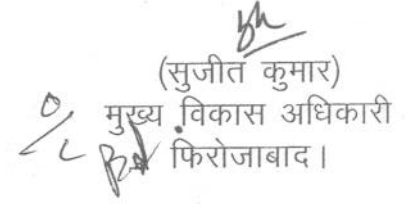 (सुजीत कुमार)
मुख्य विकास अधिकारी
फिरोजाबाद।